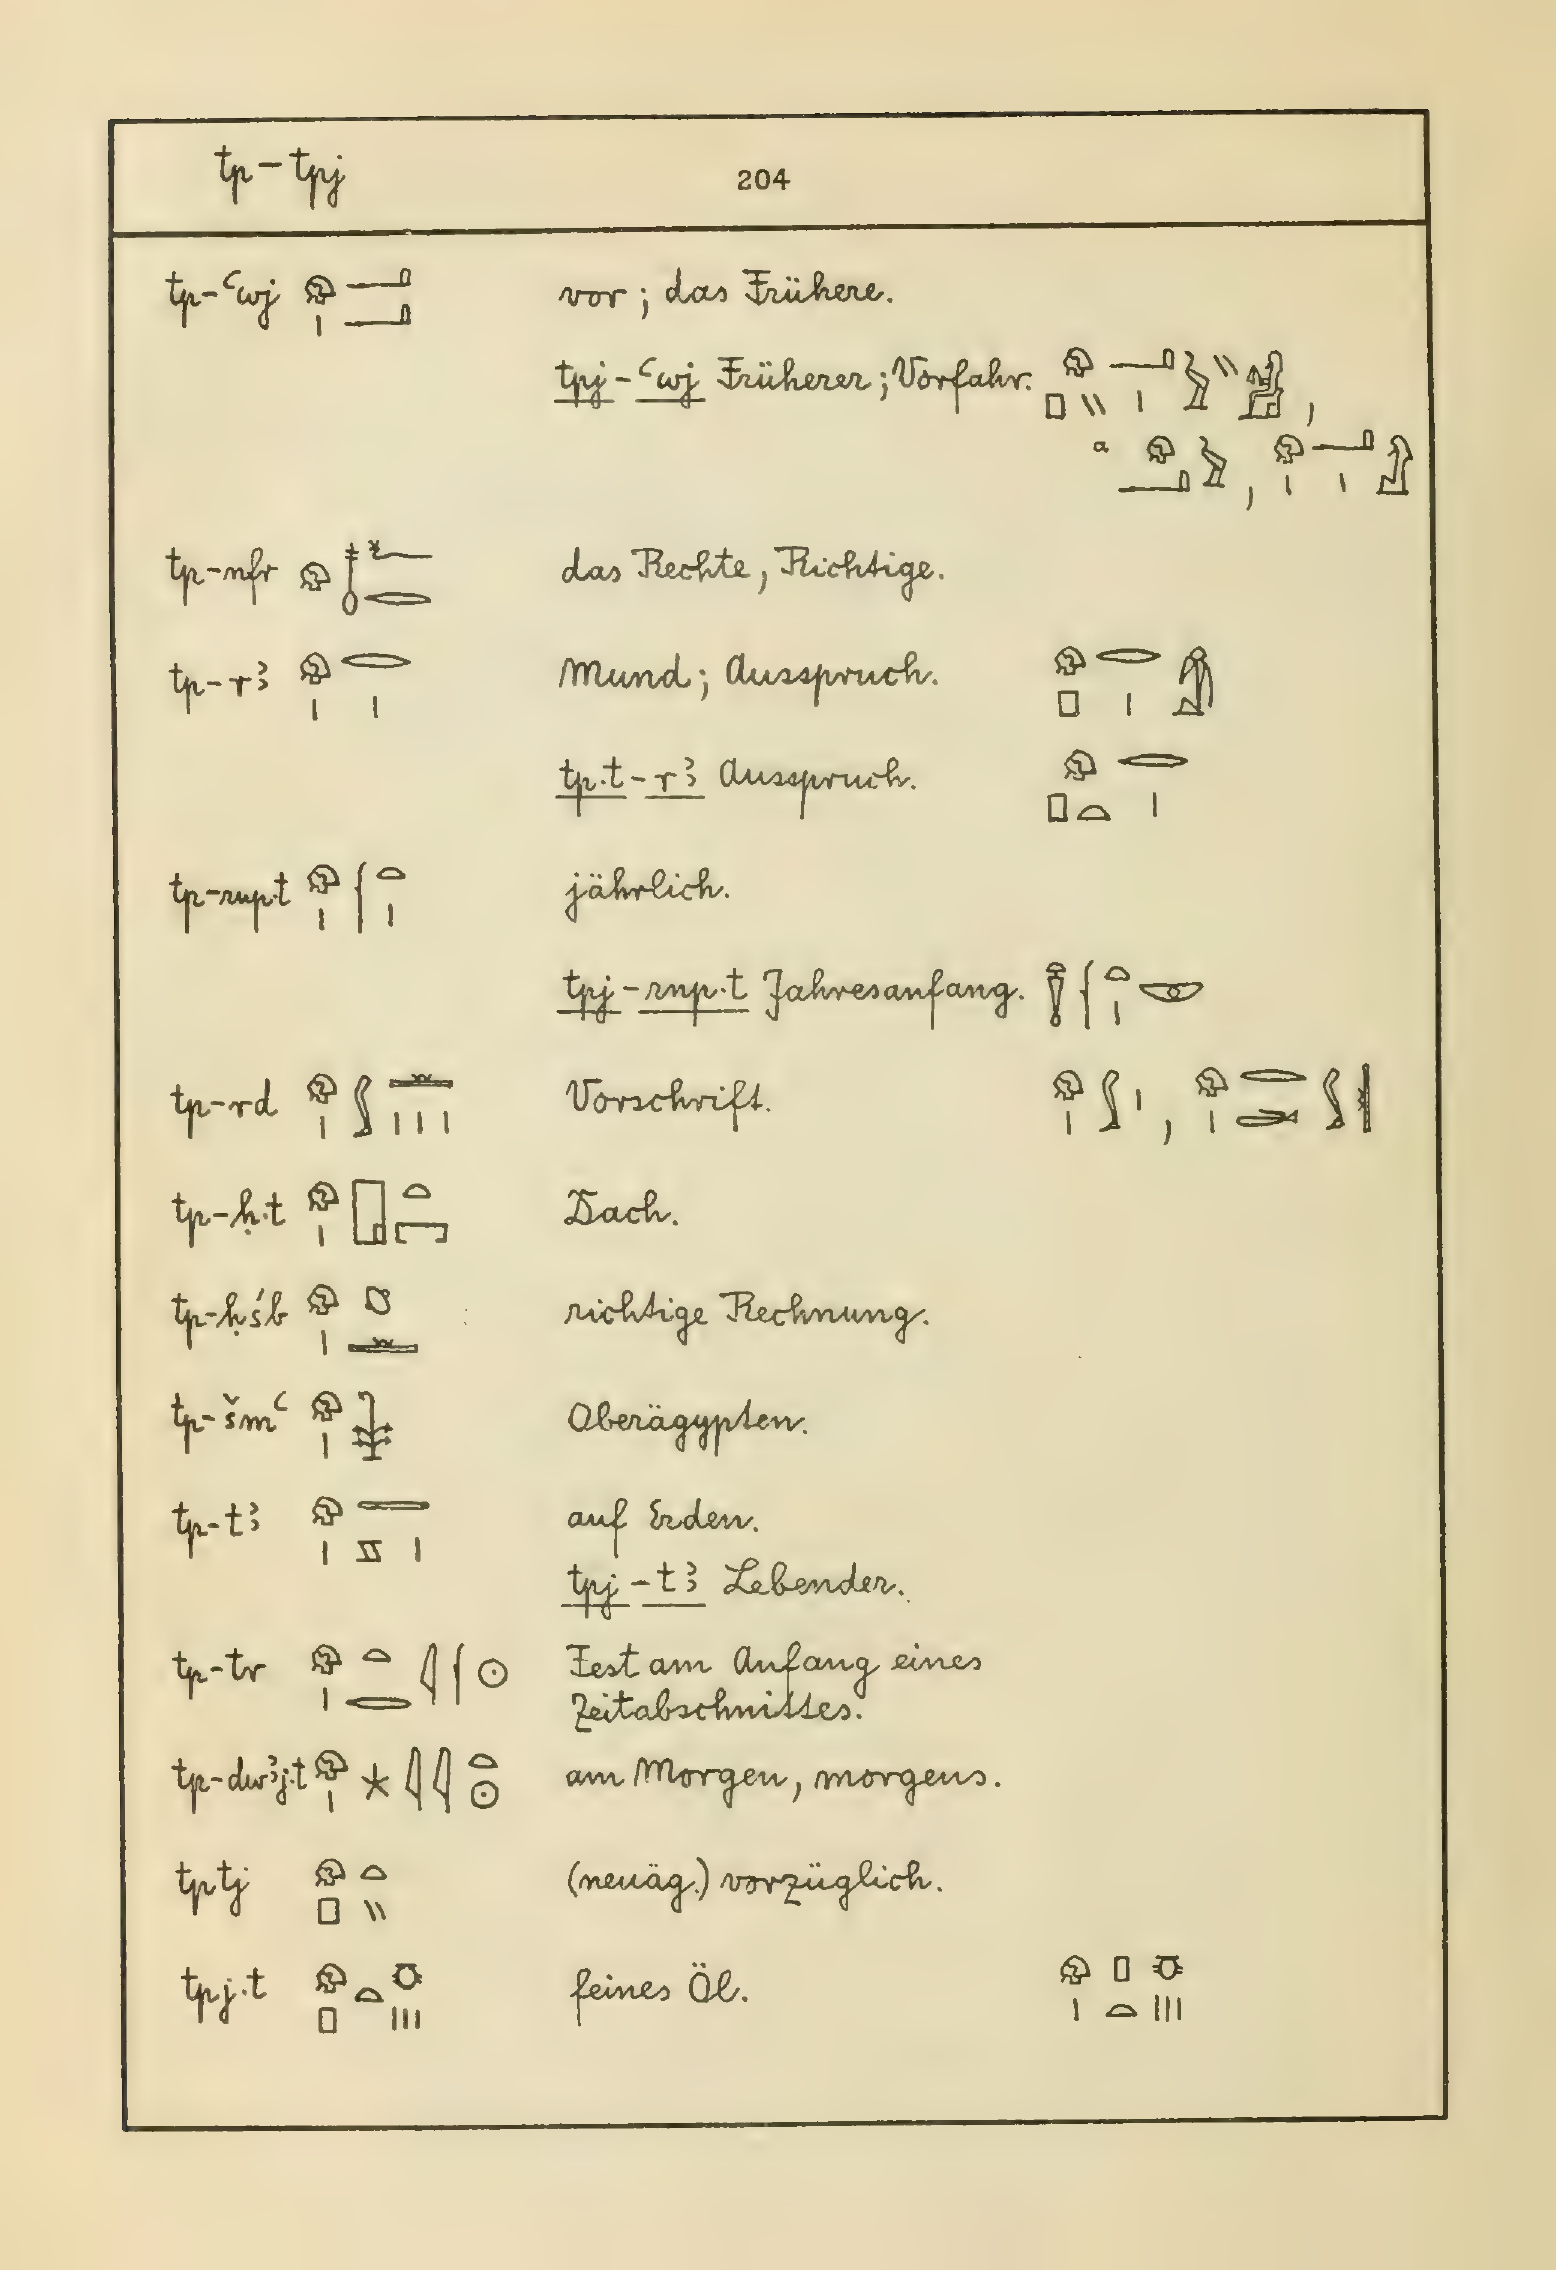 tp – tpj
204
tp-ꜥwj 𓁶𓏤𓂝𓂝 vor; das Frühere.
tpj-ꜥwj Früherer; Vorfahr.
a
tp-nfr 𓁶𓄤𓆑𓂋 das Rechte, Richtige.
tp-rꜣ 𓁶𓏤𓂋𓏤 Mund; Ausspruch.
tp.t-rꜣ Ausspruch. 𓁶𓊪𓏏𓂋𓏤
tp-rnp.t 𓁶𓏤𓆳𓏏𓏤 jährlich.
tpj-rnp.t Jahresanfang.
tp-rd 𓁶𓏤𓂾𓏛𓏤𓏤𓏤 Vorschrift. 𓁶𓏤𓂾𓏤, 𓁶𓏤𓂋𓂧𓂾𓏛
tp-ḥ.t 𓁶𓏤𓉗𓏏𓉐 Dach.
tp-ḥśb 𓁶𓏤 richtige Rechnung.
tp-šmꜥ 𓁶𓏤 Oberägypten.
tp-tꜣ 𓁶𓏤𓇾𓈅𓏤 auf Erden.
tpj-tꜣ Lebender.
tp-tr 𓁶𓏤𓏏𓂋𓇋𓆳𓇳 Fest am Anfang eines
Zeitabschnittes.
tp-dwꜣj.t 𓁶𓏤𓇼𓇋𓇋𓏏𓇳 am Morgen, morgens.
tptj 𓁶𓊪𓏏𓏭 (neuäg.) vorzüglich.
tpj.t 𓁶𓊪𓏏𓏼 feines Öl.